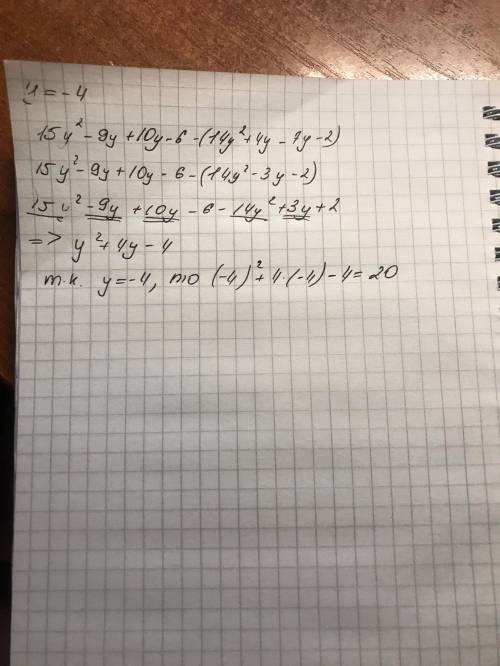 y = -4
15y² - 9y + 10y - 6 - (14y² + 4y - 7y - 2)
15y² - 9y + 10y - 6 - (14y² - 3y - 2)
15y² - 9y + 10y - 6 - 14y² + 3y + 2
=> y² + 4y - 4
т.к. y = -4, то (-4)² + 4·(-4) - 4 = 20